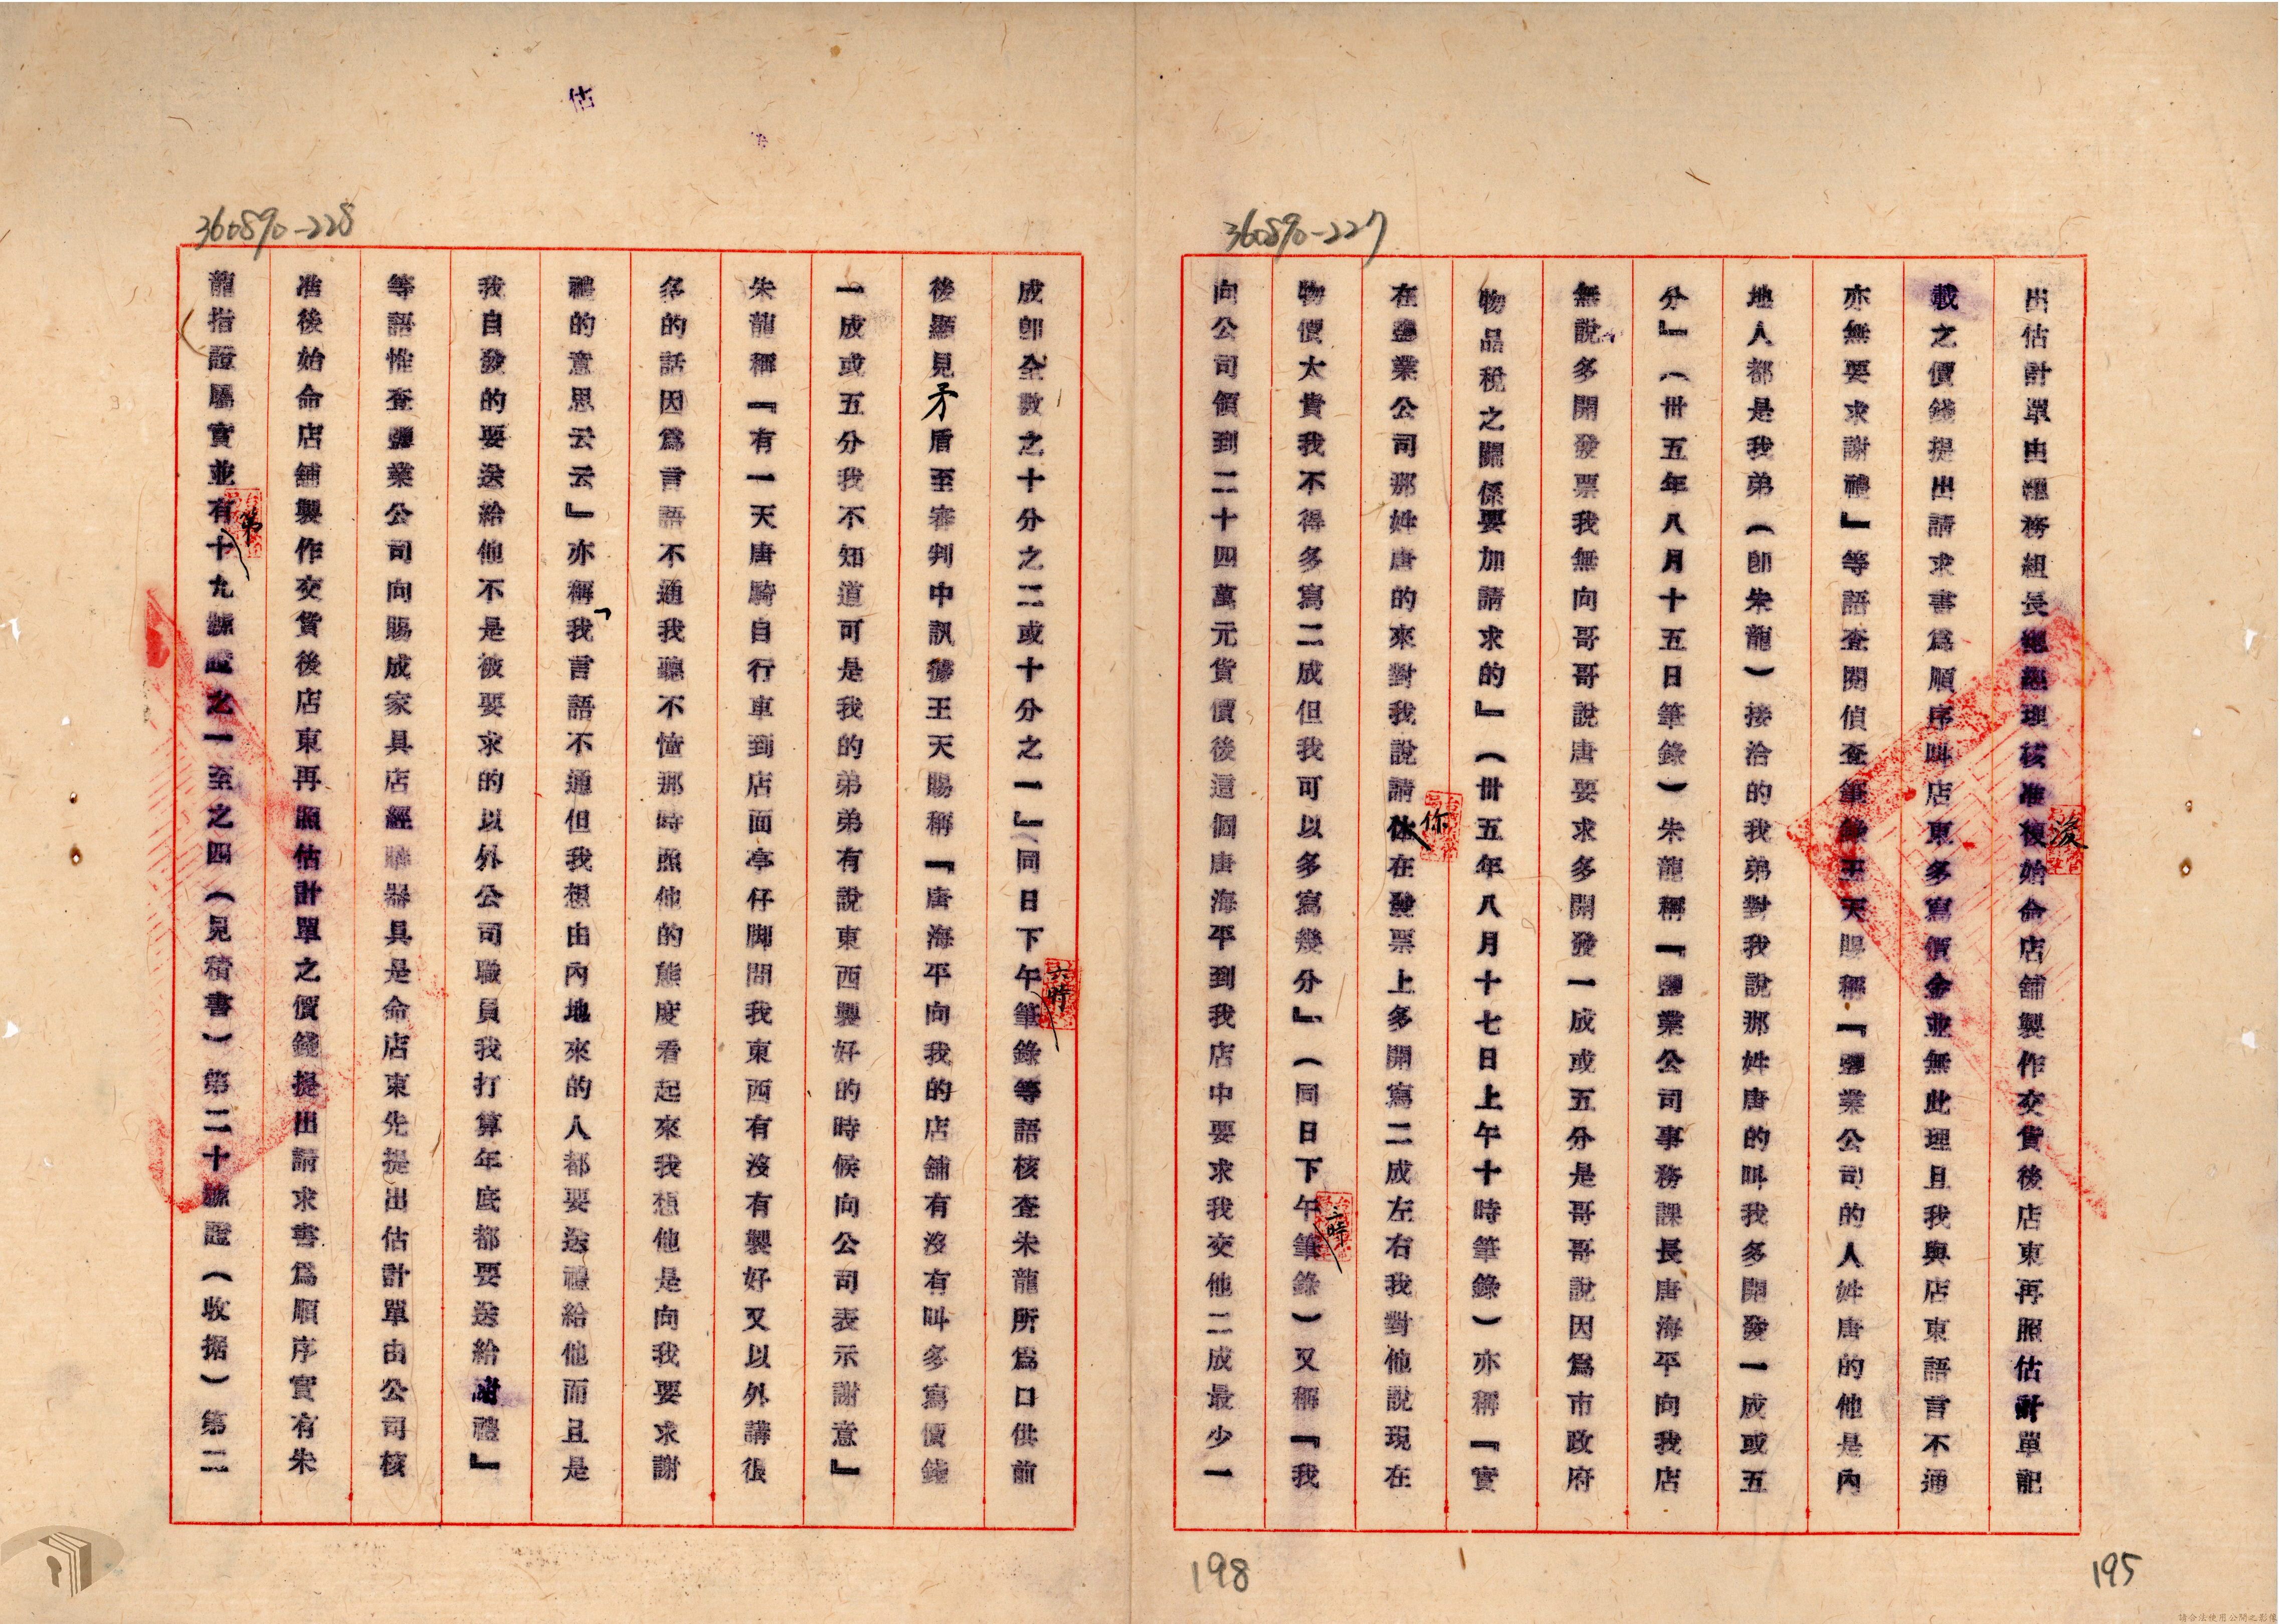 360890-227
出估計單由總務組長總經理核准後始命店舖製作交貨後店東再照估計單記
載之價錢提出請求書爲順序叫店東多寫價金並無此理且我與店東語言不通
亦無要求謝禮』等語查閱偵查筆錄王天賜稱『鹽業公司的人姓唐的他是內
地人都是我弟（卽朱龍）接洽的我弟對我說那姓唐的叫我多開發一成或五
分』（卅五年八月十五日筆錄）朱龍稱『鹽業公司事務課長唐海平向我店
無說多開發票我無向哥哥說唐要求多開發一成或五分是哥哥說因爲市政府
物品稅之關係要加請求的』（卅五年八月十七日上午十時筆錄）亦稱『實
在鹽業公司那姓唐的來對我說請你在發票上多開寫二成左右我對他說現在
物價太貴我不得多寫二成但我可以多寫幾分』（同日下午三時筆錄）又稱『我
向公司領到二十四萬元貨價後這個唐海平到我店中要求我交他二成最少一
195
198
360890-228
成卽全數之十分之二或十分之一』（同日下午六時筆錄等語核查朱龍所爲口供前
後顯見矛盾至審判中訊據王天賜稱『唐海平向我的店舖有沒有叫多寫價錢
一成或五分我不知道可是我的弟弟有說東西製好的時候向公司表示謝意』
朱龍稱『有一天唐騎自行車到店面亭仔脚問我東西有沒有製好又以外講很
多的話因爲言語不通我聽不懂那時照他的態度看起來我想他是向我要求謝
禮的意思云云』亦稱『我言語不通但我想由內地來的人都要送禮給他而且是
我自發的要送給他不是被要求的以外公司職員我打算年底都要送給謝禮』
等語惟查鹽業公司向賜成家具店經購器具是命店東先提出估計單由公司核
准後始命店舖製作交貨後店東再照估計單之價錢提出請求書爲順序實有朱
龍指證屬實並有第十九號證之一至之四（見積書）第二十號證（收据）第二
估
請合法使用公開之影像